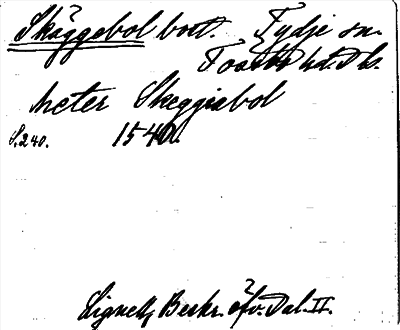 Skäggebol bort. Tydje sn.
Tössbo hd. Dls.
heter Skeggiabol
S. 240. 1540.
Lignell, Beskr. öfv. Dal. II.